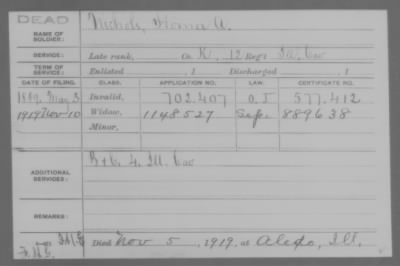 DEAD
NAME OF SOLDIER: Nichols, Homer A.
SERVICE: Late rank, Co. K, 12 Reg't Ill. Cav
TERM OF SERVICE: Enlisted , 1 Discharged , 1
DATE OF FILING. CLASS. APPLICATION NO. LAW. CERTIFICATE NO.
1889, May 3 Invalid, 702.407 O.J 577.412
1919 Nov 10 Widow, 1148527 Sep. 889638
Minor,
ADDITIONAL SERVICES: B+C. 4. Ill. Cav
REMARKS:
Died Nov 5, 1919, at Aledo, Ill.